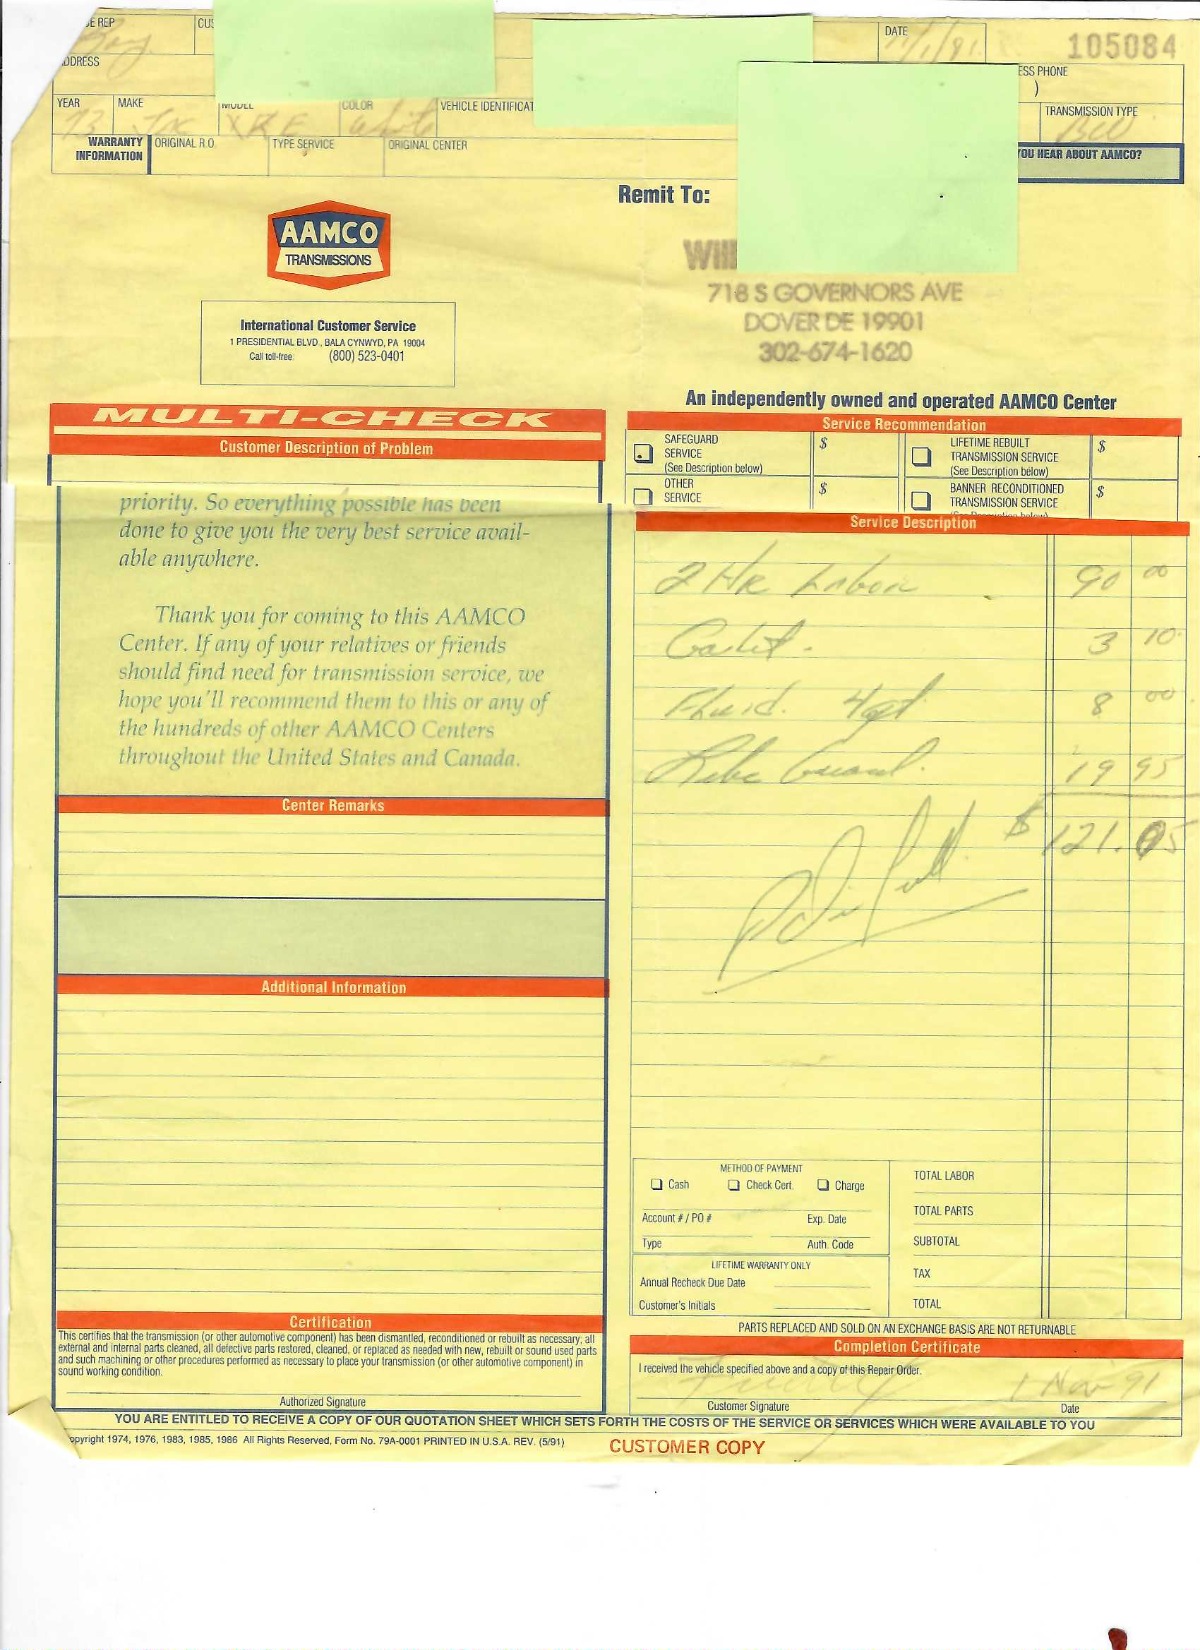 E REP
CUS
DATE
11/1/91
105084
DDRESS
ESS PHONE
)
YEAR MAKE MODEL COLOR VEHICLE IDENTIFICAT
TRANSMISSION TYPE
White
WARRANTY INFORMATION
ORIGINAL R.O. TYPE SERVICE ORIGINAL CENTER
YOU HEAR ABOUT AAMCO?
Remit To:
AAMCO
TRANSMISSIONS
Will
718 S GOVERNORS AVE
DOVER DE 19901
302-674-1620
International Customer Service
1 PRESIDENTIAL BLVD., BALA CYNWYD, PA 19004
Call toll-free (800) 523-0401
An independently owned and operated AAMCO Center
MULTI-CHECK
Customer Description of Problem
priority. So everything possible has been
done to give you the very best service avail-
able anywhere.
Thank you for coming to this AAMCO
Center. If any of your relatives or friends
should find need for transmission service, we
hope you'll recommend them to this or any of
the hundreds of other AAMCO Centers
throughout the United States and Canada.
Center Remarks
Additional Information
Certification
This certifies that the transmission (or other automotive component) has been dismantled, reconditioned or rebuilt as necessary; all
external and internal parts cleaned, all defective parts restored, cleaned, or replaced as needed with new, rebuilt or sound used parts
and such machining or other procedures performed as necessary to place your transmission (or other automotive component) in
sound working condition.
Authorized Signature
Service Recommendation
SAFEGUARD
SERVICE
(See Description below)
$
LIFETIME REBUILT
TRANSMISSION SERVICE
(See Description below)
$
OTHER
SERVICE
$
BANNER RECONDITIONED
TRANSMISSION SERVICE
$
Service Description
2 Hr Labor 90 00
Gasket. 3 10
Fluid. 4qt 8 00
Lube Guard. 19 95
$ 121.05
METHOD OF PAYMENT
Cash Check Cert. Charge
Account # / PO # Exp. Date
Type Auth. Code
LIFETIME WARRANTY ONLY
Annual Recheck Due Date
Customer's Initials
TOTAL LABOR
TOTAL PARTS
SUBTOTAL
TAX
TOTAL
PARTS REPLACED AND SOLD ON AN EXCHANGE BASIS ARE NOT RETURNABLE
Completion Certificate
I received the vehicle specified above and a copy of this Repair Order.
1 Nov 91
Customer Signature Date
YOU ARE ENTITLED TO RECEIVE A COPY OF OUR QUOTATION SHEET WHICH SETS FORTH THE COSTS OF THE SERVICE OR SERVICES WHICH WERE AVAILABLE TO YOU
opyright 1974, 1976, 1983, 1985, 1986 All Rights Reserved, Form No. 79A-0001 PRINTED IN U.S.A. REV. (5/91)
CUSTOMER COPY